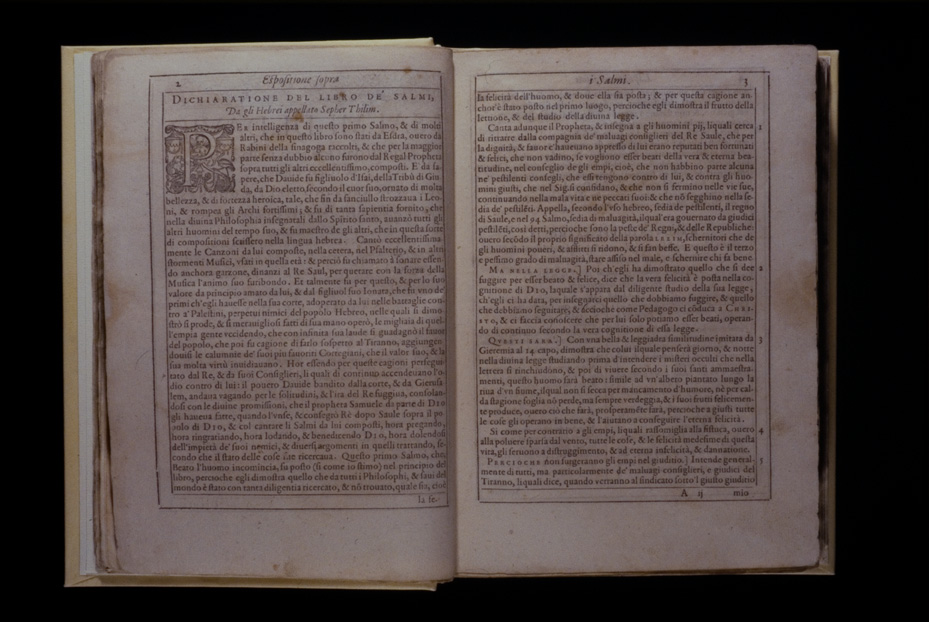 2 Espositione sopra
DICHIARATIONE DEL LIBRO DE' SALMI,
Da gli Hebrei appellato Sepher Thilim.
PEr intelligenza di questo primo Salmo, & di molti
altri, che in questo libro sono stati da Esdra, ouero da
Rabini della sinagoga raccolti, & che per la maggior
parte senza dubbio alcuno furono dal Regal Propheta
sopra tutti gli altri eccellentissimo, composti. E da sa-
pere, che Dauide fu figliuolo d'Isai, della Tribù di Giu
da, da Dio eletto, secondo il cuor suo, ornato di molta
bellezza, & di fortezza heroica, tale, che fin da fanciullo strozzaua i Leo-
ni, & rompea gli Archi fortissimi; & fu di tanta sapientia fornito, che
nella diuina Philosophia insegnatali dallo Spirito santo, auanzò tutti gli
altri huomini del tempo suo, & fu maestro de gli altri, che in questa sorte
di compositioni scrissero nella lingua hebrea. Cantò eccellentissima-
mente le Canzoni da lui composte, nella cetera, nel Psalterio, & in altri
stormenti Musici, vsati in questa età: & perciò fu chiamato à sonare essen-
do anchora garzone, dinanzi al Re Saul, per quetare con la forza della
Musica l'animo suo furibondo. Et talmente fu per questo, & per lo suo
valore da principio amato da lui, & dal figliuol suo Ionata, che fu vno de'
primi ch'egli hauesse nella sua corte, adoperato da lui nelle battaglie con-
tro a' Palestini, perpetui nimici del popolo Hebreo, nelle quali si dimo-
strò sì prode, & sì merauigliosi fatti di sua mano operò, le migliaia di quel-
l'empia gente vccidendo, che con infinita sua laude si guadagnò il fauore
del popolo, che poi fu cagione di farlo sospetto al Tiranno, aggiungen-
douisi le calumnie de' suoi più fauoriti Cortegiani, che il valor suo, & la
sua molta virtù inuidiauano. Hor essendo per queste cagioni persegui-
tato dal Re, & da suoi Consiglieri, li quali di continuo accendeuano l'o-
dio contro di lui: il pouero Dauide bandito dalla corte, & da Gierusa
lem, andaua vagando per le solitudini, & l'ira del Re fuggiua, consolan-
dosi con le diuine promissioni, che il propheta Samuele da parte di DIO
gli haueua fatte, quando l'vnse, & consegrò Rè dopo Saule sopra il po-
polo di DIO, & col cantare li Salmi da lui composti, hora pregando,
hora ringratiando, hora lodando, & benedicendo DIO, hora dolendosi
dell'impietà de' suoi nemici, & diuersi argomenti in quelli trattando, se-
condo che il stato delle cose sue ricercaua. Questo primo Salmo, che,
Beato l'huomo incomincia, fu posto (sì come io stimo) nel principio del
libro, percioche egli dimostra quello che da tutti i Philosophi, & saui del
mondo è stato con tanta diligentia ricercato, & nõ trouato, quale sia, cioè
la fe-
i Salmi. 3
la felicità dell'huomo, & doue ella sia posta; & per questa cagione an-
chor'è stato posto nel primo luogo, percioche egli dimostra il frutto della
lettione, & del studio della diuina legge.
Canta adunque il Propheta, & insegna a gli huomini pij, liquali cerca 1
di ritrarre dalla compagnia de' maluagi consiglieri del Re Saule, che per
la dignità, & fauore c'haueuano appresso di lui erano reputati ben fortunati
& felici, che non vadino, se vogliono esser beati della vera & eterna bea-
titudine, nel conseglio de gli empi, cioè, che non habbino parte alcuna
ne' pestilenti consegli, che essi tengono contro di lui, & contra gli huo-
mini giusti, che nel Sig. si confidano, & che non si fermino nelle vie sue,
continuando nella mala vita e ne peccati suoi: & che nõ segghino nella se-
dia de' pestilẽti. Appella, secondo l'vso hebreo, sedia de' pestilenti, il regno
di Saule, e nel 94 Salmo, sedia di maluagità, il qual era gouernato da giudici
pestilẽti, così detti, percioche sono la peste de' Regni, & delle Republiche:
ouero secõdo il proprio significato della parola LESIM, schernitori che de
gli huomini poueri, & afflitti si ridono, & si fan beffe. E questo è il terzo
e pessimo grado di malnagità, stare assiso nel male, e schernire chi fa bene.
MA NELLA LEGGE.] Poi ch'egli ha dimostrato quello che si dee 2
fuggire per esser beato & felice, dice che la vera felicità è posta nella co-
gnitione di DIO, laquale s'appara dal diligente studio della sua legge,
ch'egli ci ha data, per insegnarci quello che dobbiamo fuggire, & quello
che dobbiamo seguitare, & accioche come Pedagogo ci cõduca a CHRI-
STO, & ci faccia conoscere che per lui solo possiamo esser beati, operan-
do di continuo secondo la vera cognitione di essa legge.
QUESTI SARA.] Con vna bella & leggiadra similitudine imitata da 3
Gieremia al 24 capo, dimostra che colui il quale penserà giorno, & notte
nella diuina legge studiando prima d'intendere i misteri occulti che nella
lettera si rinchiudono, & poi di viuere secondo i suoi santi ammaestra-
menti, questo huomo sarà beato: simile ad vn'albero piantato lungo la
riua d'vn fiume, il qual non si secca per mancamento d'humore, nè per cal-
da stagione foglia nõ perde, ma sempre verdeggia, & i suoi frutti felicemen-
te produce, ouero ciò che farà, prosperamẽte farà, percioche a giusti tutte
le cose gli operano in bene, & l'aiutano a conseguire l'eterna felicità.
Sì come per contrario a gli empi, liquali rassomiglia alla fistuca, ouero 4
alla poluere sparsa dal vento, tutte le cose, & le felicità medesime di questa
vita, gli seruono a distruggimento, & ad eterna infelicità, & dannatione.
PERCIOCHE non surgeranno gli empi nel giuditio.] Intende general- 5
mente di tutti, ma particolarmente de' maluagi consiglieri, e giudici del
Tiranno, liquali dice, quando verranno al sindicato sotto'l giusto giuditio
A ij mio